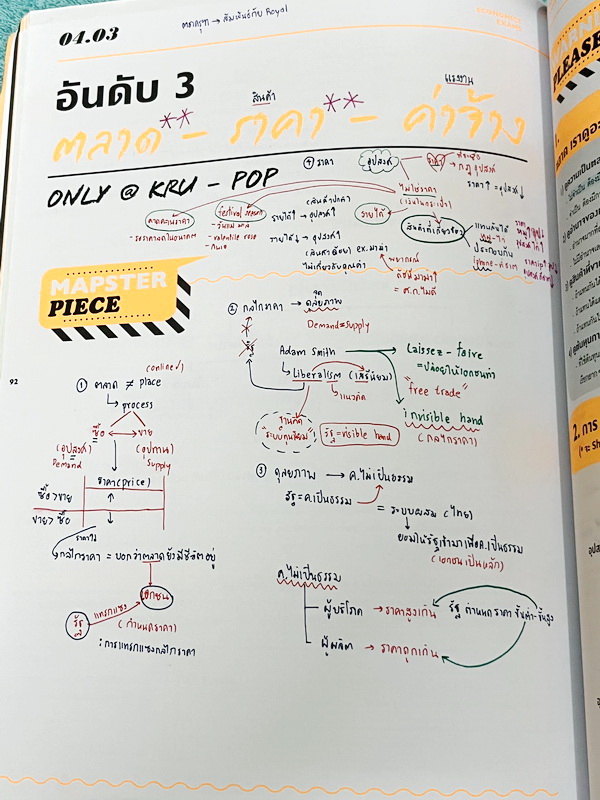 04.03
ECONOMICS
EXAMS
อันดับ 3
สินค้า
แรงงาน
ตลาด** - ราคา** - ค่าจ้าง
ONLY @ KRU - POP
④ ราคา
อุปสงค์
กฎอุปสงค์
ราคา↑ = อุปสงค์↓
ไม่ใช่ราคา
คาดคะเนราคา
festival season
- รอราคาลดในอนาคต
- วันแม่ มะลิ
- valentine rose
(สินค้าปกติ)
รายได้↑ → อุปสงค์↑
รายได้
รายได้↓ → อุปสงค์↑
(สินค้าด้อย) ex. มาม่า
ไม่เกี่ยวกับคุณค่า
พยากรณ์
ดัชนีมาม่า↑
= ศ.ก.ไม่ดี
สินค้าที่เกี่ยวข้อง
แทนกันได้
ประกอบกัน
MAPSTER
PIECE
92
② กลไกราคา → จุดดุลยภาพ
Demand = Supply
รัฐ
Adam Smith
→ Laissez - faire
= ปล่อยให้เอกชนทำ
"free trade"
Liberalism (เสรีนิยม)
→ แนวคิด
รากนคิด
"ระบบทุนนิยม"
รัฐ = visible hand
invisible hand
(กลไกราคา)
(online✓)
① ตลาด ≠ place
→ process
ซื้อ ↔ ขาย
(อุปสงค์) (อุปทาน)
Demand Supply
ราคา (price)
ซื้อ > ขาย ↑
ขาย > ซื้อ ↓
กลไกราคา = บอกว่าตลาดยังมีชีวิตอยู่
เอกชน
รัฐ แทรกแซง
(กำหนดราคา)
: การแทรกแซงกลไกราคา
③ ดุลยภาพ → ค.ไม่เป็นธรรม
รัฐ = ค.เป็นธรรม
= ระบบผสม (ไทย)
ยอมให้รัฐเข้ามาเพื่อค.เป็นธรรม
(เอกชนเป็นหลัก)
ค.ไม่เป็นธรรม
ผู้บริโภค → ราคาสูงเกิน
รัฐ กำหนดราคา ขั้นต่ำ-ขั้นสูง
ผู้ผลิต → ราคาถูกเกิน
PLEASE
1.
2. การ